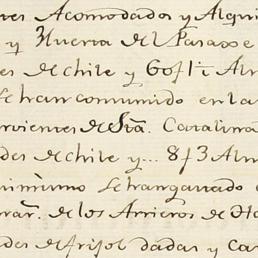 res Acomodados y Alqui
y Huerta del Paraxe
es de chile y 60 Alm
se han consumido en la
rvientes de Sta. Catalina
des de chile y... 8 Alm
nimismo se han gastado
de los Arrieros de
des de frisol dadas y Ca